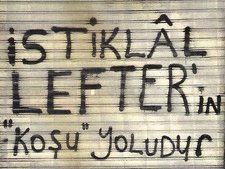 İSTİKLÂL
LEFTER'İN
"KOŞU" YOLUDUr